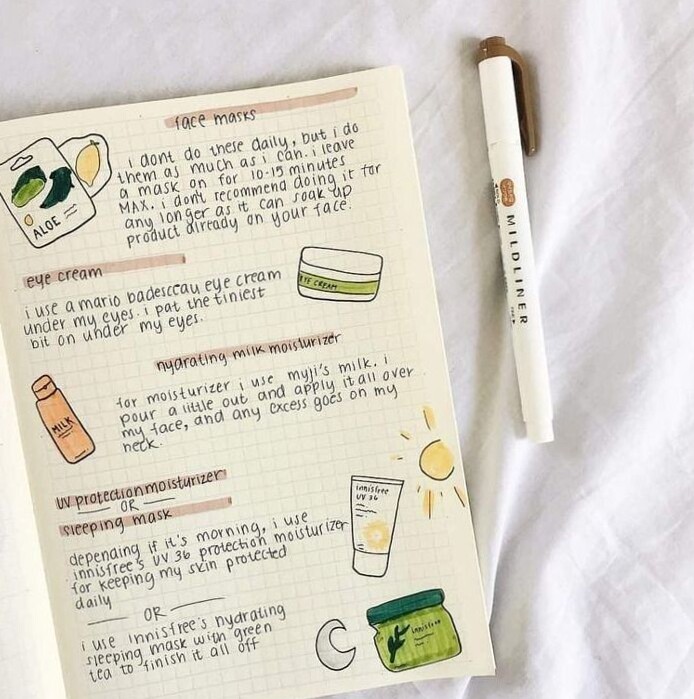 face masks
i dont do these daily, but i do
them as much as i can. i leave
a mask on for 10-15 minutes
MAX. i don't recommend doing it for
any longer as it can soak up
product already on your face.
ALOE
eye cream
i use a mario badesccau eye cream
under my eyes. i pat the tiniest
bit on under my eyes.
EYE CREAM
hydrating milk moisturizer
for moisturizer i use myji's milk. i
pour a little out and apply it all over
my face, and any excess goes on my
neck.
MILK
UV protection moisturizer
OR
sleeping mask
depending if it's morning, i use
innisfree's UV 36 protection moisturizer
for keeping my skin protected
daily
innisfree
UV 36
OR
i use innisfree's hydrating
sleeping mask with green
tea to finish it all off
innisfree
MILDLINER